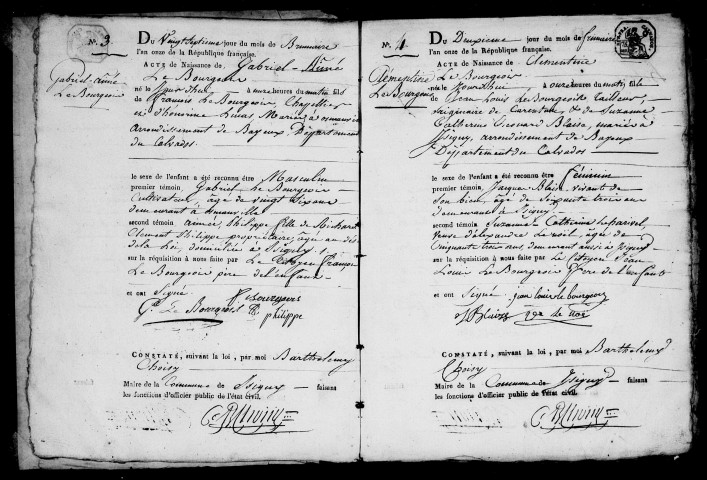 N.° 3
Gabriel-Aimé
Le Bourgeois
Du Vingt Septieme jour du mois de Brumaire
l'an onze de la République française.
ACTE de Naissance de Gabriel-Aimé
Le Bourgeois
né le jour d'hui à onze heures du matin fils
de François Le Bourgeois,
et d'honorine mariés
arrondissement de Bayeux Département
du Calvados.
le sexe de l'enfant a été reconnu être Masculin
premier témoin, Gabriel Le Bourgeois
Cultivateur, âgé de vingt
demeurant à
second témoin aimée Philippe fille de
Clement Philippe propriétaire, âgée au dés
de la Loi, domiciliée à Isigny
sur la réquisition à nous faite par Le Citoyen François
Le Bourgeois père de l'enfant
et ont Signé
Le Bourgeois
philippe
CONSTATÉ, suivant la loi, par moi Barthelemy
Choisy
Maire de la Commune de Isigny faisans
les fonctions d'officier public de l'état civil.
N.° 4
Clémentine
Le Bourgeois
Du Deuxieme jour du mois de frimaire
l'an onze de la République française.
ACTE de Naissance de Clémentine
Le Bourgeois
née le jourd'hui à onze heures du matin fille
de Jean Louis Le Bourgeois tailleur,
originaire de Carentan & de Suzanne
Catherine Leonard Blaise, mariés à
Isigny, arrondissement de Bayeux
Département du Calvados
le sexe de l'enfant a été reconnu être féminin
premier témoin, Jacques Blaise vivant de
son bien, âgé de soixante trois ans
demeurant à Isigny
second témoin Suzanne Catherine
veuve d'alexandre Le noël, âgée de
Cinquante trois ans, demeurant aussi à Isigny
sur la réquisition à nous faite par Le Citoyen Jean
Louis Le Bourgeois Père de l'enfant
et ont Signé jean louis le bourgeois
CONSTATÉ, suivant la loi, par moi Barthelemy
Choisy
Maire de la Commune de Isigny faisans
les fonctions d'officier public de l'état civil.